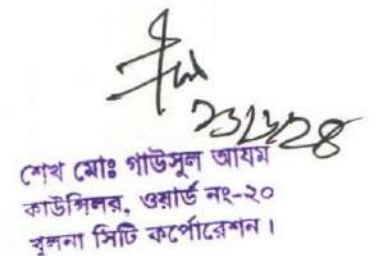 শেখ মোঃ গাউসুল আযম
কাউন্সিলর, ওয়ার্ড নং-২০
খুলনা সিটি কর্পোরেশন।